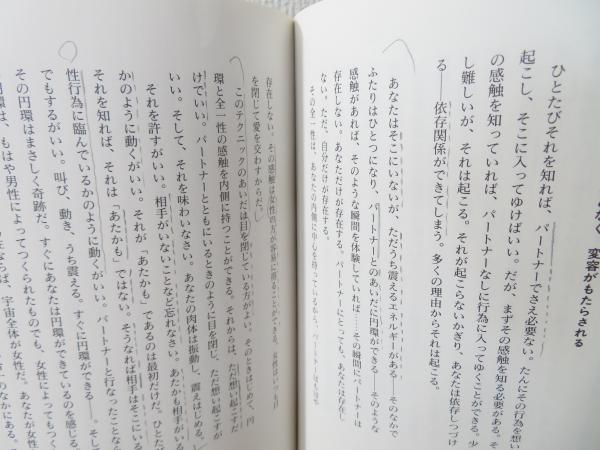 変容がもたらされる
ひとたびそれを知れば、パートナーでさえ必要ない。たんにその行為を想い
起こし、そこに入ってゆけばいい。だが、まずその感触を知る必要がある。そ
の感触を知っていれば、パートナーなしに行為に入ってゆくことができる。少
し難しいが、それは起こる。それが起こらないかぎり、あなたは依存しつづけ
る――依存関係ができてしまう。多くの理由からそれは起こる。
あなたはそこにいないが、ただうち震えるエネルギーがある――そのなかで
ふたりはひとつになり、パートナーとのあいだに円環ができる――そのような
感触があれば、そのような瞬間を体験していれば……その瞬間にパートナーは
存在しない。あなただけが存在する。パートナーにとっても、あなたは存在し
ない。ただ、自分だけが存在する。
その全一性は、あなたの内側に中心を持っているから、パートナーはもはや
存在しない。その感触は女性の方が容易に得ることができる。女性はいつも目
を閉じて愛を交わすからだ。
このテクニックのあいだは目を閉じている方がよい。そのときはじめて、円
環と全一性の感触を内側に持つことができる。それからは、ただ想い起こすだ
けでいい。パートナーとともにいるときのように目を閉じ、ただ想い起こすが
いい。そして、それを味わいなさい。あなたの肉体は振動し、震えはじめる。
それを許すがいい。相手がいないことなど忘れなさい。あたかも相手がいる
かのように動くがいい。それが「あたかも」であるのは最初だけだ。ひとた
それを知れば、それは「あたかも」ではない。そうなれば相手はそこにいる
性行為に臨んでいるかのように動くがいい。パートナーと行なったことなら
でもするがいい。叫び、動き、うち震える。すぐに円環ができる――、そして
その円環はまさしく奇跡だ。すぐにあなたは円環ができているのを感じる。
円環は、もはや男性によってつくられたものでも、女性によってもな
ならば、宇宙全体が女性だ。あなたが女性
のなかにある。